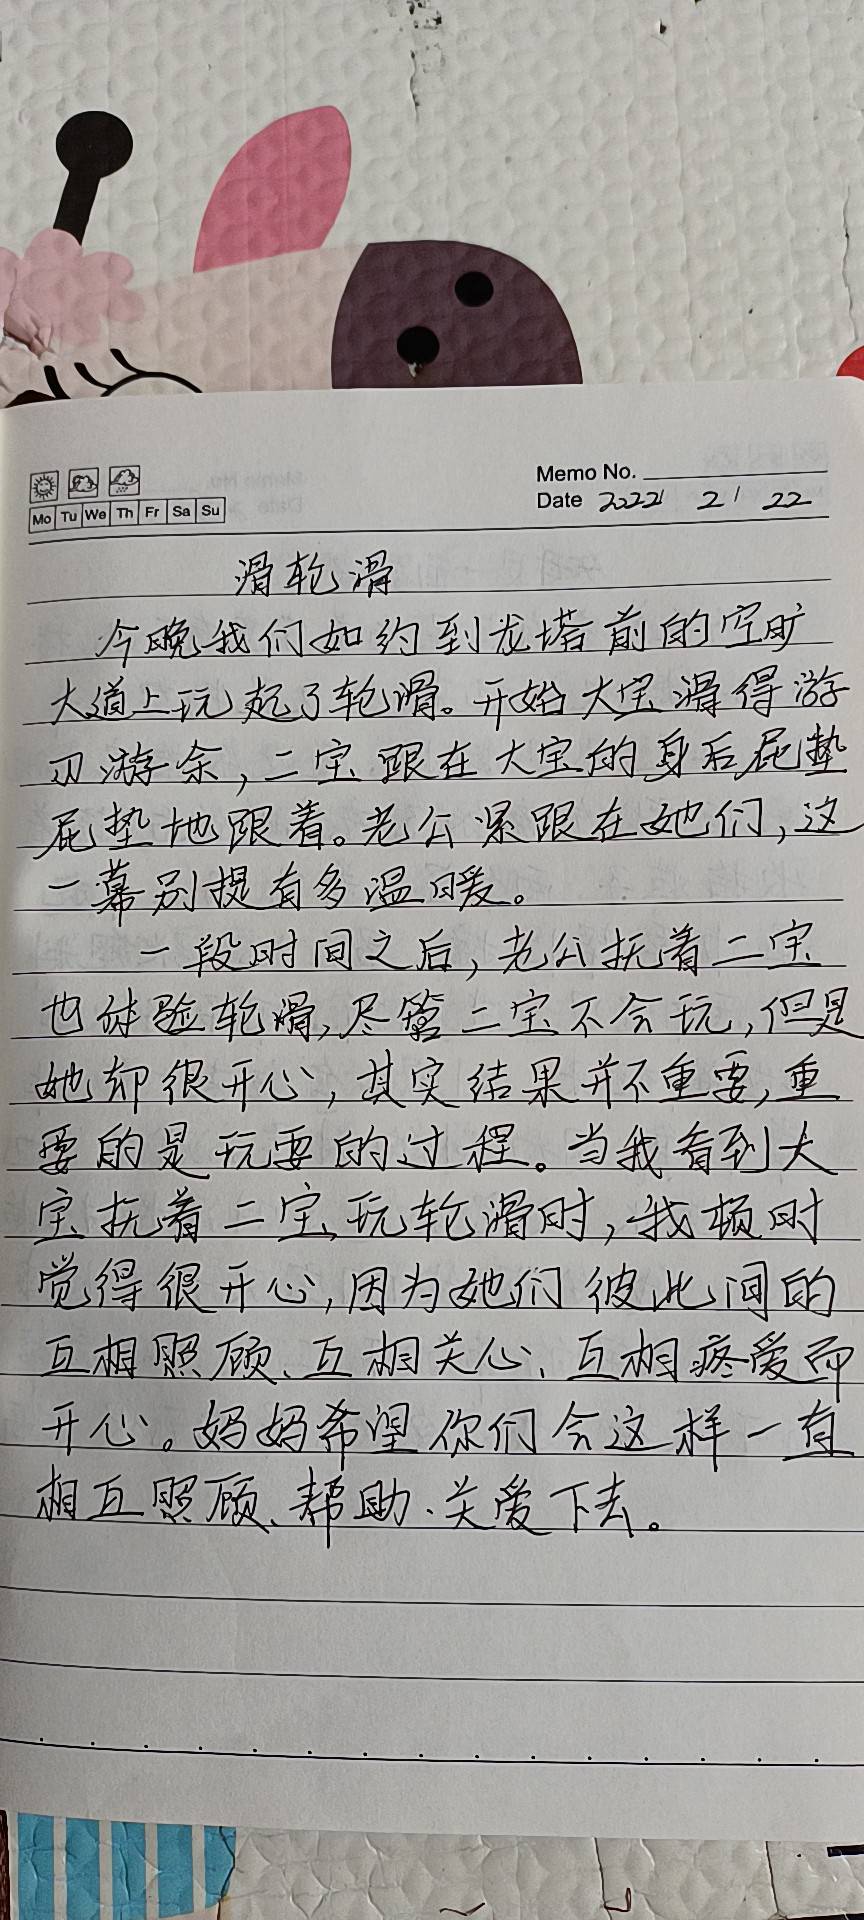 Memo No.
Mo Tu We Th Fr Sa Su
Date 2022 / 2 / 22
滑轮滑
今晚我们如约到龙塔前的空旷
大道上玩起了轮滑。开始大宝滑得游
刃游余,二宝跟在大宝的身后屁垫
屁垫地跟着。老公紧跟在她们,这
一幕别提有多温暖。
一段时间之后,老公扶着二宝
也体验轮滑,尽管二宝不会玩,但是
她却很开心,其实结果并不重要,重
要的是玩耍的过程。当我看到大
宝扶着二宝玩轮滑时,我顿时
觉得很开心,因为她们彼此间的
互相照顾、互相关心、互相疼爱而
开心。妈妈希望你们会这样一直
相互照顾、帮助、关爱下去。